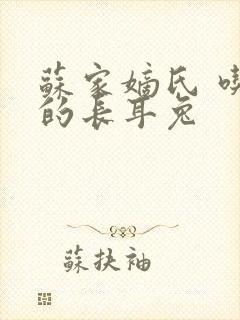 蘇家嫡氏
的長耳兔
蘇扶袖